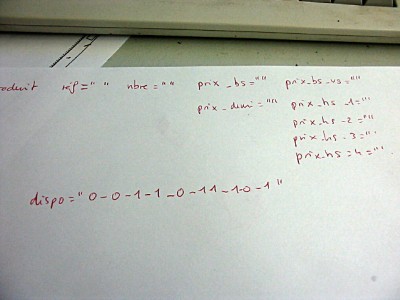 roduit réf="" nbre="" prix_bs="" prix_bs_vs=""
prix_demi="" prix_hs_1=""
prix_hs_2=""
prix_hs_3=""
prix_hs=4=""
dispo="0-0-1-1-0-11-1-0-1"